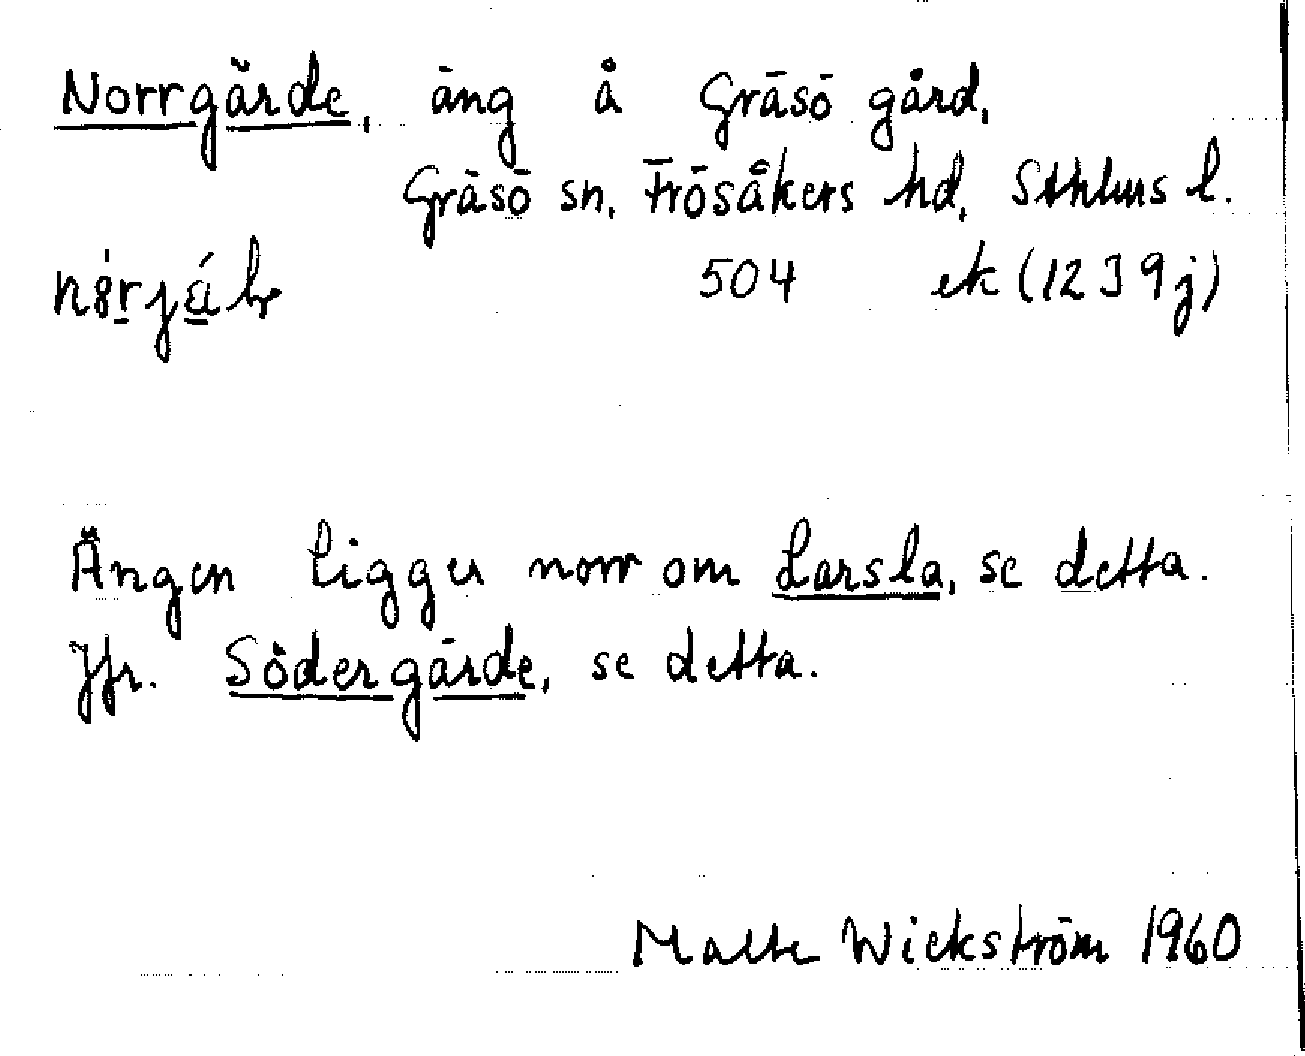 Norrgärde, äng å Gräsö gård,
Gräsö sn, Frösåkers hd, Sthlms l.
504 ek (1239j)
Ängen ligger norr om Larsla, se detta.
Jfr. Södergärde, se detta.
Malte Wickström 1960